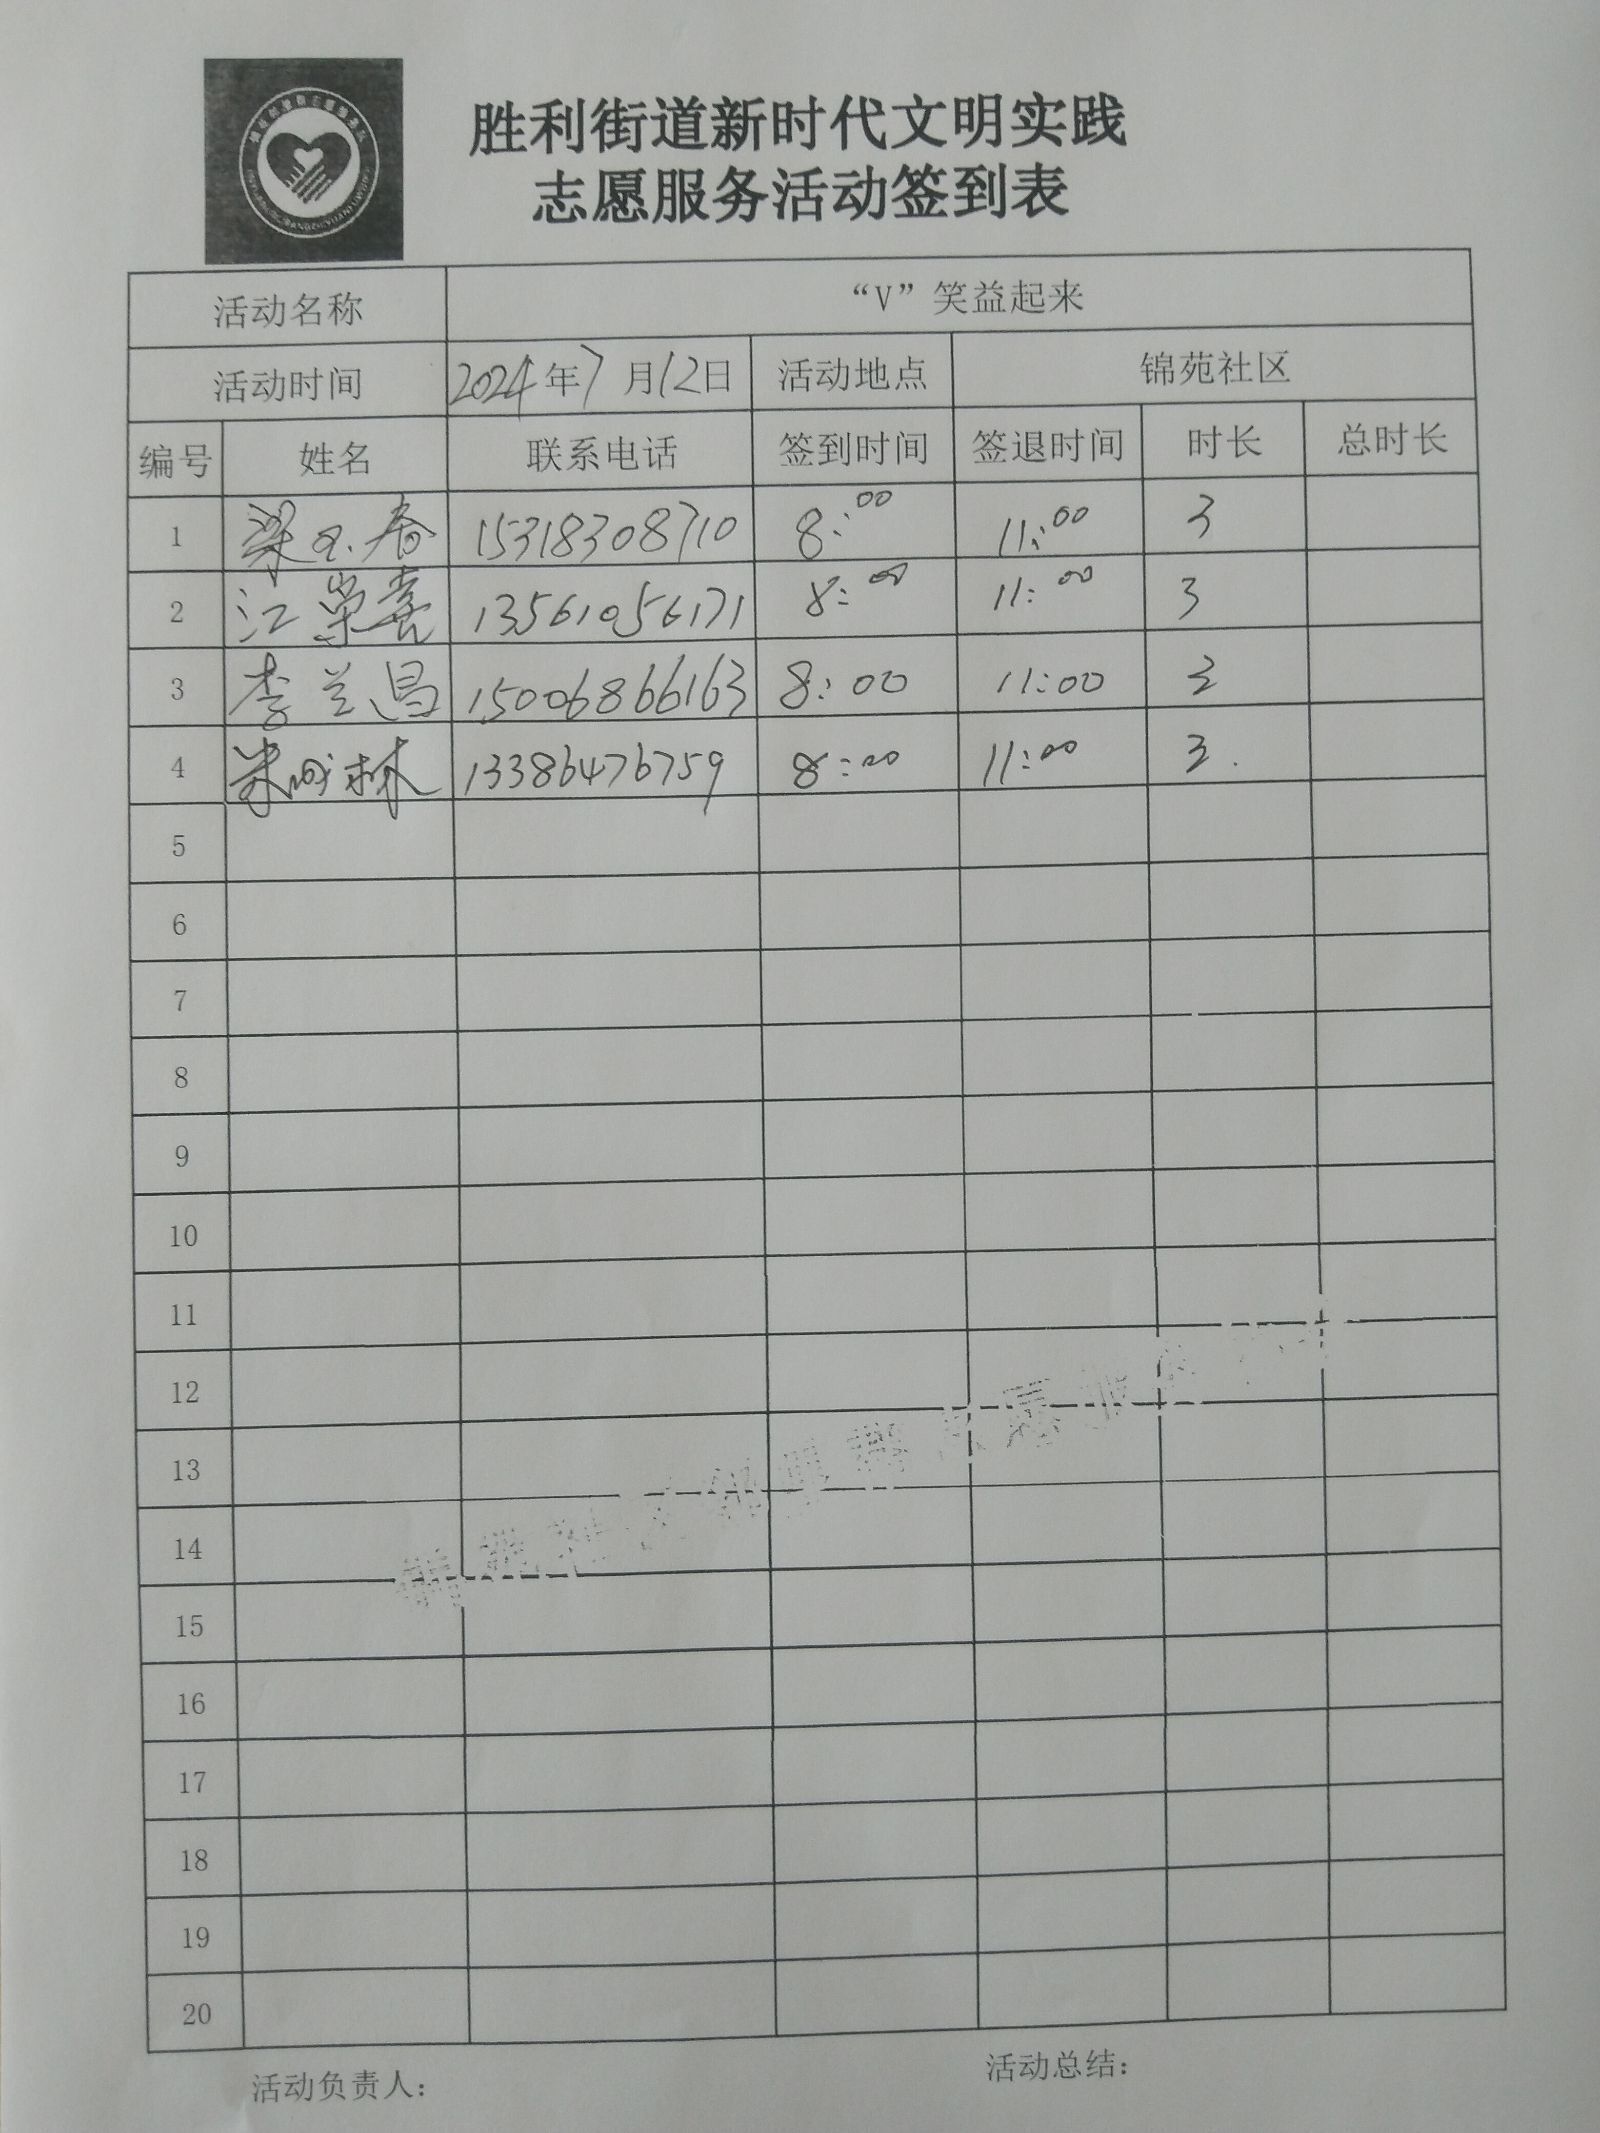 胜利街道新时代文明实践
志愿服务活动签到表
活动名称 “V”笑益起来
活动时间 2024年7月12日 活动地点 锦苑社区
编号 姓名 联系电话 签到时间 签退时间 时长 总时长
1 梁 春 15318308710 8:00 11:00 3
2 江荣喜 13561056171 8:00 11:00 3
3 李兰昌 15006866163 8:00 11:00 3
4 林 13386476759 8:00 11:00 3.
5
6
7
8
9
10
11
12
13
14
15
16
17
18
19
20
活动负责人: 活动总结: